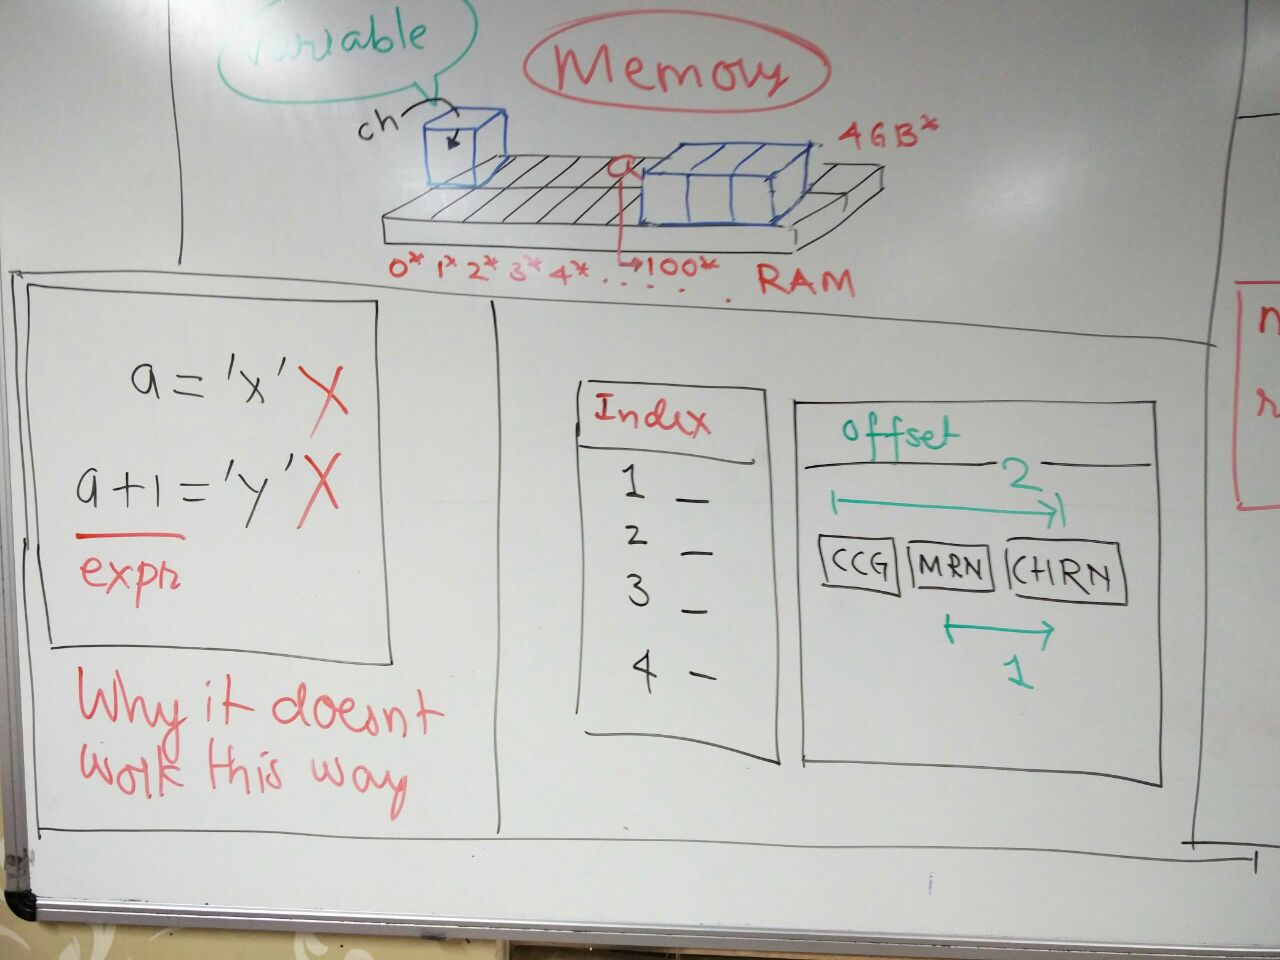 variable
Memory
ch
a
4GB*
0* 1* 2* 3* 4* . . . . . 100*
RAM
a = 'x' X
a+1 = 'y' X
expr
Why it doesnt
work this way
Index
1 _
2 _
3 _
4 _
offset
2
CCG MRN CHRN
1